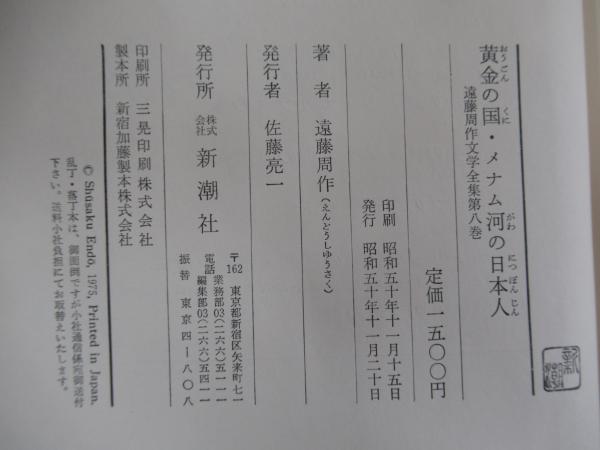 黄金の国・メナム河の日本人
おうごん くに がわ につぽんじん
遠藤周作文学全集第八巻
定価一五〇〇円
印刷 昭和五十年十一月十五日
発行 昭和五十年十一月二十日
著者 遠藤周作(えんどうしゆうさく)
発行者 佐藤亮一
発行所 株式会社 新潮社
〒162 東京都新宿区矢来町七一
電話 業務部03(二六六)五一一一
編集部03(二六六)五四一一
振替 東京四―八〇八
印刷所 三晃印刷株式会社
製本所 新宿加藤製本株式会社
© Shūsaku Endō, 1975, Printed in Japan.
乱丁・落丁本は、御面倒ですが小社通信係宛御送付
下さい。送料小社負担にてお取替えいたします。